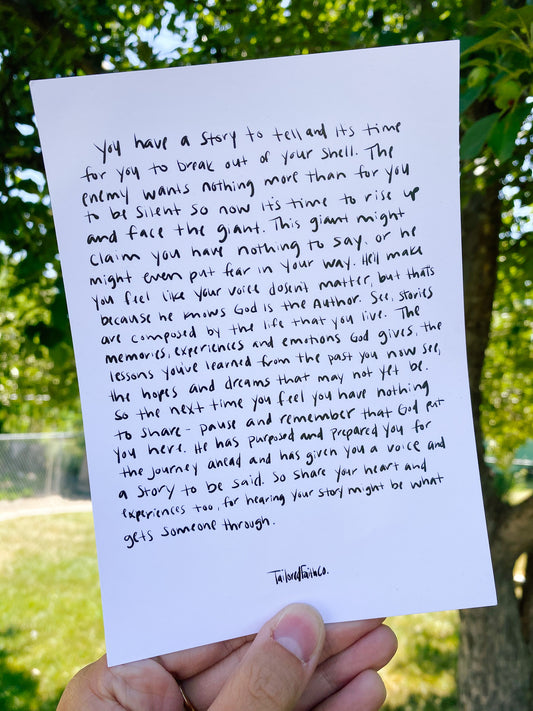 You have a story to tell and its time
for you to break out of your shell. The
enemy wants nothing more than for you
to be silent so now it's time to rise up
and face the giant. This giant might
claim you have nothing to say, or he
might even put fear in your way. He'll make
you feel like your voice doesn't matter, but thats
because he knows God is the Author. See, stories
are composed by the life that you live. The
memories, experiences and emotions God gives, the
lessons you've learned from the past you now see,
the hopes and dreams that may not yet be.
So the next time you feel you have nothing
to share - pause and remember that God put
you here. He has purposed and prepared you for
the journey ahead and has given you a voice and
a story to be said. So share your heart and
experiences too, for hearing your story might be what
gets someone through.
TailoredFaithCo.